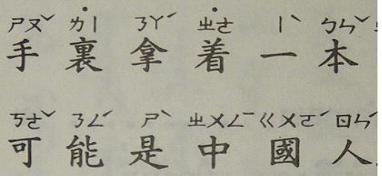 ㄕㄡˇ ˙ㄌㄧ ㄋㄚˊ ˙ㄓㄜ ㄧˋ ㄅㄣˇ
手裏拿着一本
ㄎㄜˇ ㄋㄥˊ ㄕˋ ㄓㄨㄥˉ ㄍㄨㄛˊ ㄖㄣˊ
可能是中國人